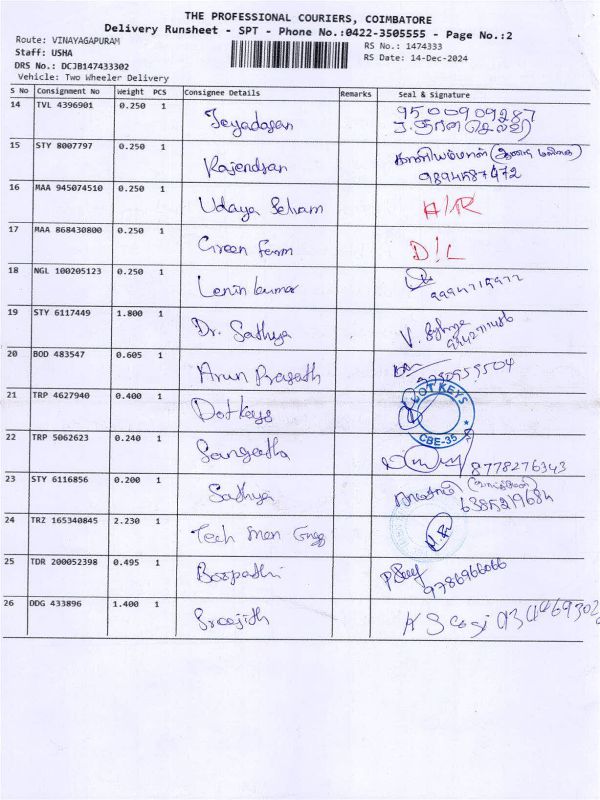 THE PROFESSIONAL COURIERS, COIMBATORE
Delivery Runsheet - SPT - Phone No.:0422-3505555 - Page No.:2
Route: VINAYAGAPURAM
RS No.: 1474333
Staff: USHA
RS Date: 14-Dec-2024
DRS No.: DCJB147433302
Vehicle: Two Wheeler Delivery
S No Consignment No Weight PCS Consignee Details Remarks Seal & Signature
14 TVL 4396901 0.250 1 Jeyadasan 9500909287
15 STY 8007797 0.250 1 Rajendran
9894587472
16 MAA 945074510 0.250 1 Udaya Selvam
17 MAA 868430800 0.250 1 Green Farm D/L
18 NGL 100205123 0.250 1 Lenin kumar
19 STY 6117449 1.800 1 Dr. Sathya V.
20 BOD 483547 0.605 1 Arun Prasath
21 TRP 4627940 0.400 1 Dotkeys DOT KEYS CBE-35
22 TRP 5062623 0.240 1 Sangeetha 8778276343
23 STY 6116856 0.200 1 Sathya
6385219684
24 TRZ 165340845 2.230 1 Tech Men Engg
25 TDR 200052398 0.495 1 Boopathi
9786966066
26 DDG 433896 1.400 1 Sreejith